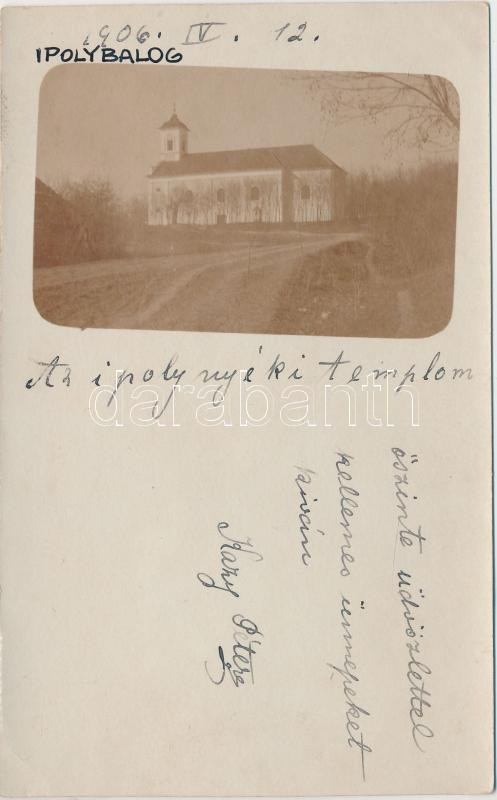 1906. IV. 12.
IPOLYBALOG
Az ipolynyéki templom
darabanth
őszinte üdvözlettel
kellemes ünnepeket
kíván
Péter